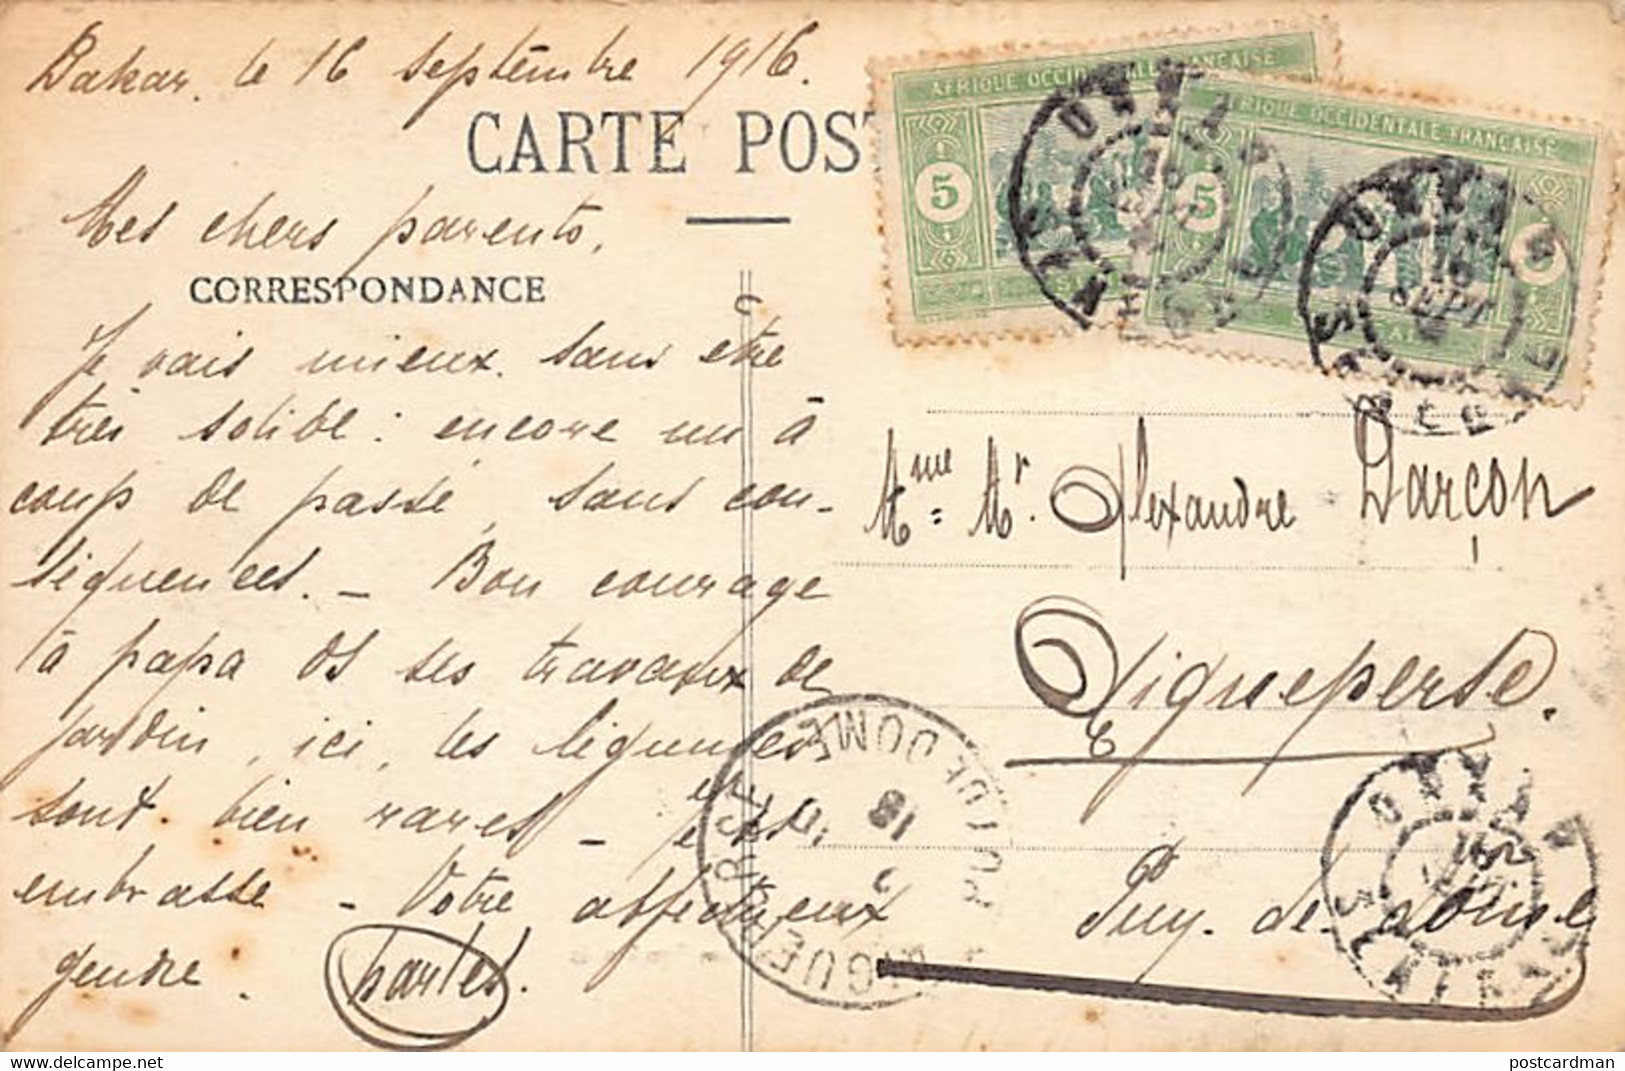 Dakar, le 16 septembre 1916.
CARTE POST
Mes chers parents,
CORRESPONDANCE
Je vais mieux sans etre
très solide : encore un à
coup de passé, sans con-
séquences. — Bon courage
à papa ds ses travaux de
jardin, ici, les légumes
sont bien rares —
embrasse — Votre affectueux
gendre.
AFRIQUE OCCIDENTALE FRANÇAISE
5
AFRIQUE OCCIDENTALE FRANÇAISE
5
5
16
SEPT
Mme = Mr. Alexandre Darçon
Aigueperse.
Puy. de. dôme
AIGUEPERSE
PUY-DE-DOME
18
delcampe.net
postcardman